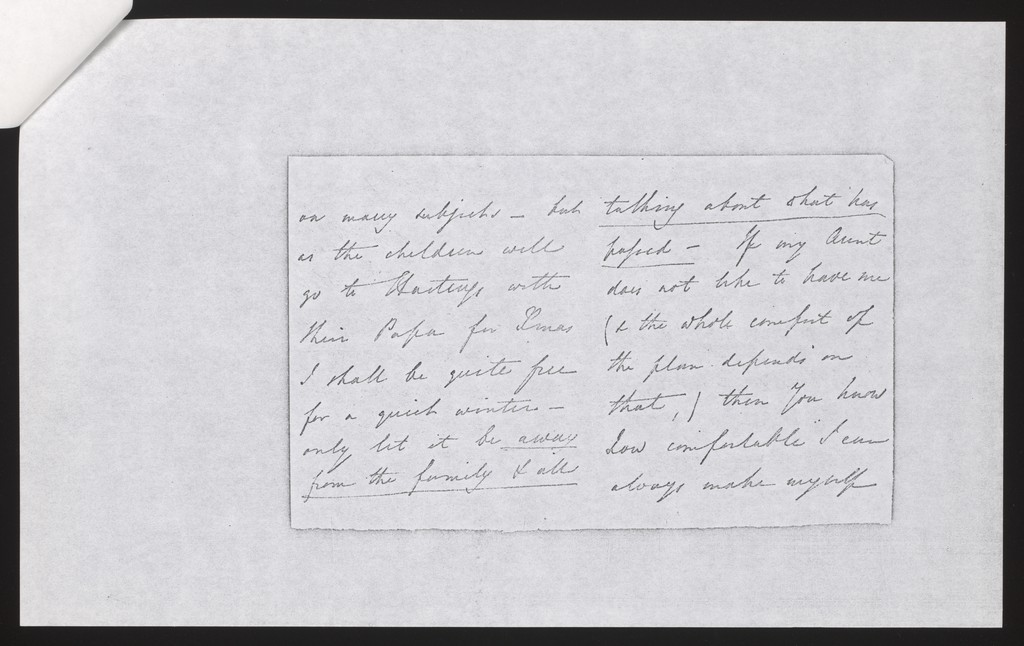 on many subjects - but
as the children will
go to Hastings with
their Papa for Xmas
I shall be quite free
for a quiet winter -
only let it be away
from the family & all
talking about what has
passed - If my Aunt
does not like to have me
(& the whole comfort of
the plan depends on
that,) then you know
how comfortable I can
always make myself